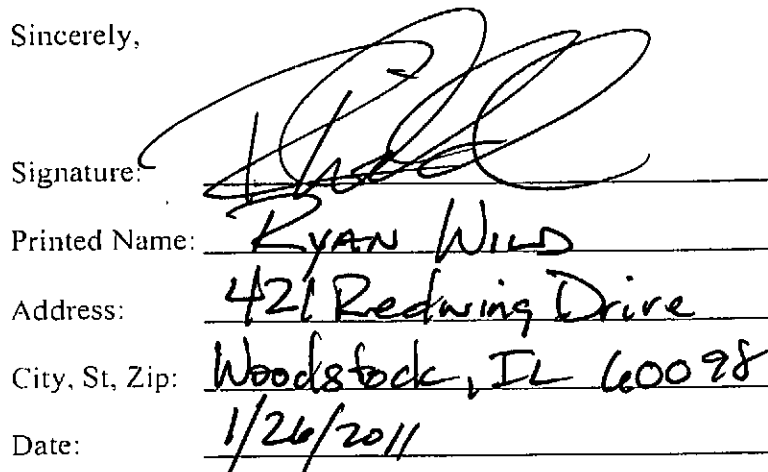 Sincerely,
Signature:
Printed Name: RYAN WILD
Address: 421 Redwing Drive
City, St, Zip: Woodstock, IL 60098
Date: 1/26/2011